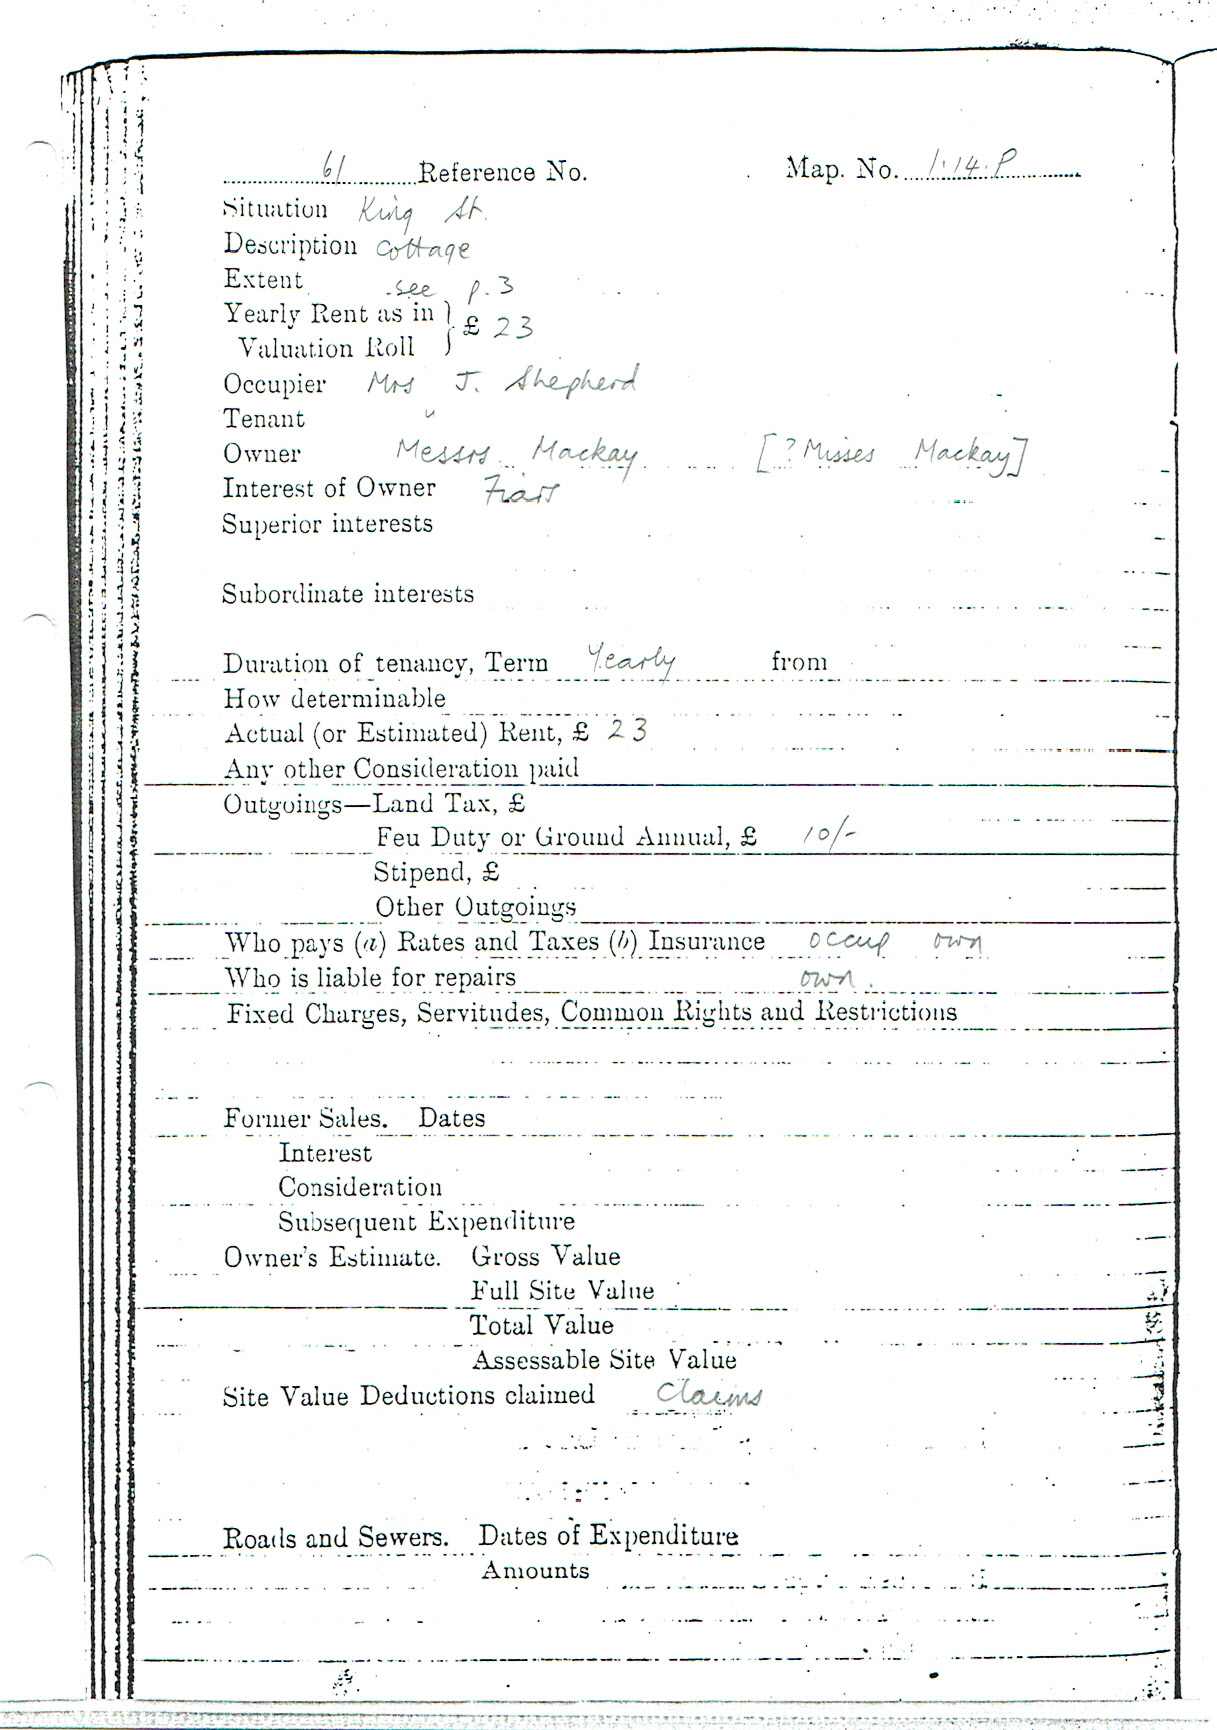 61 Reference No. Map. No. 1.14.P
Situation King St.
Description Cottage
Extent see p.3
Yearly Rent as in
Valuation Roll } £ 23
Occupier Mrs J. Shepherd
Tenant "
Owner Messrs Mackay [? Misses Mackay]
Interest of Owner Fiars
Superior interests
Subordinate interests
Duration of tenancy, Term Yearly from
How determinable
Actual (or Estimated) Rent, £ 23
Any other Consideration paid
Outgoings—Land Tax, £
Feu Duty or Ground Annual, £ 10/-
Stipend, £
Other Outgoings
Who pays (a) Rates and Taxes (b) Insurance occup own
Who is liable for repairs own.
Fixed Charges, Servitudes, Common Rights and Restrictions
Former Sales. Dates
Interest
Consideration
Subsequent Expenditure
Owner's Estimate. Gross Value
Full Site Value
Total Value
Assessable Site Value
Site Value Deductions claimed Claims
Roads and Sewers. Dates of Expenditure
Amounts